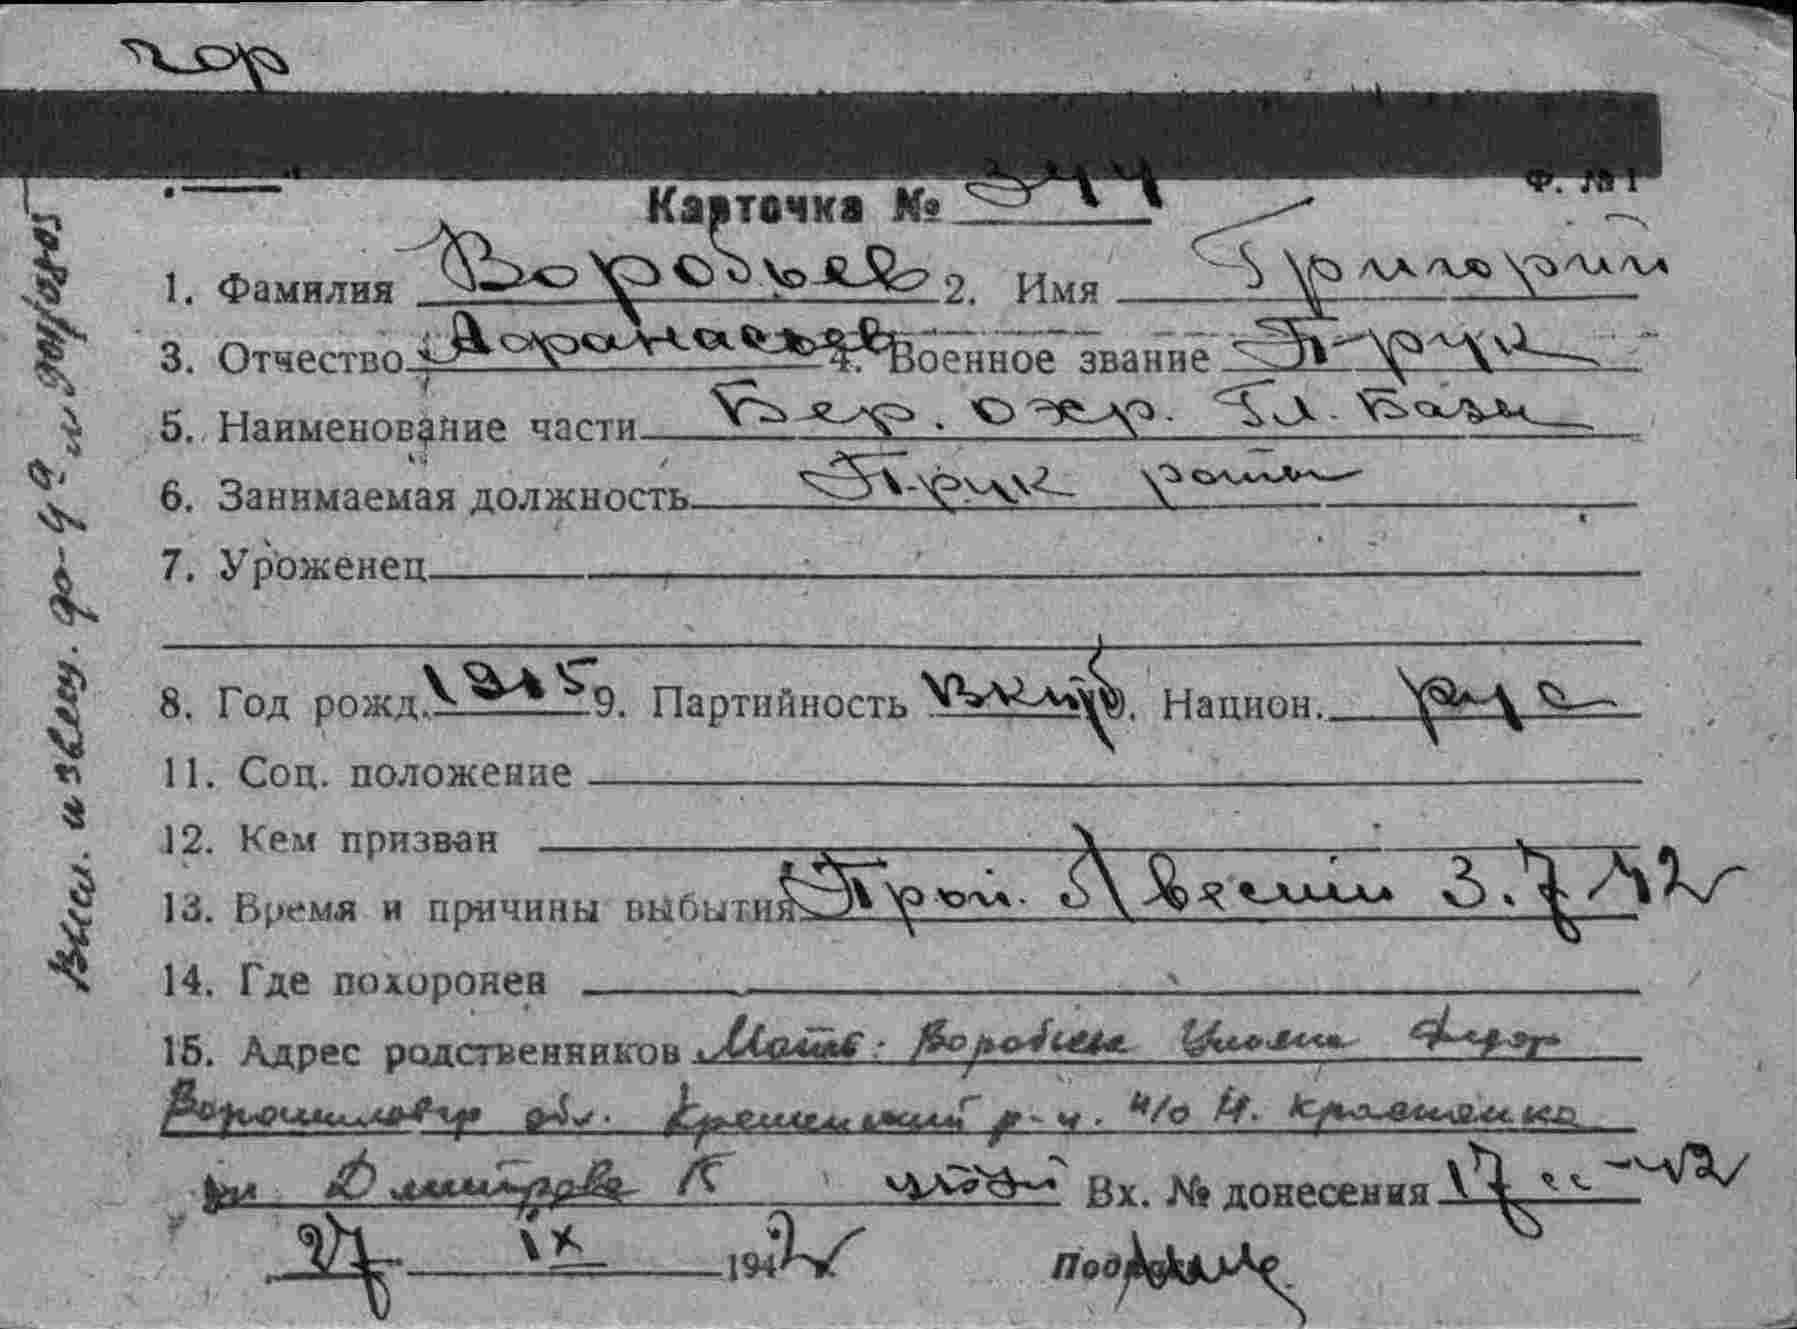 чор
Ф. № 1
Карточка № 344
1. Фамилия Воробьев 2. Имя Григорий
3. Отчество Афанасьев 4. Военное звание П-рук
5. Наименование части Бер. охр. Гл. Базы
6. Занимаемая должность П-рук роты
7. Уроженец
8. Год рожд. 1915 9. Партийность ВКПб. Национ. рус
11. Соц. положение
12. Кем призван
13. Время и причины выбытия Проп. б/вести 3.7.42
14. Где похоронен
15. Адрес родственников Мать: Воробьева Ульяна Федор
Ворошиловгр обл. Кременский р-н. п/о Н. Краснянка
ул Дмитрова Вх. № донесения 17 сс-42
27 IX 1942 Подпись
Выс. извещ. до-4